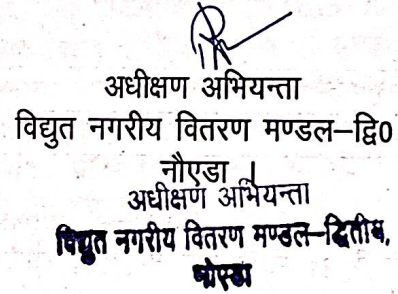 अधीक्षण अभियन्ता
विद्युत नगरीय वितरण मण्डल–द्वि0
नौएडा ।
अधीक्षण अभियन्ता
विद्युत नगरीय वितरण मण्डल–द्वितीय,
नोएडा